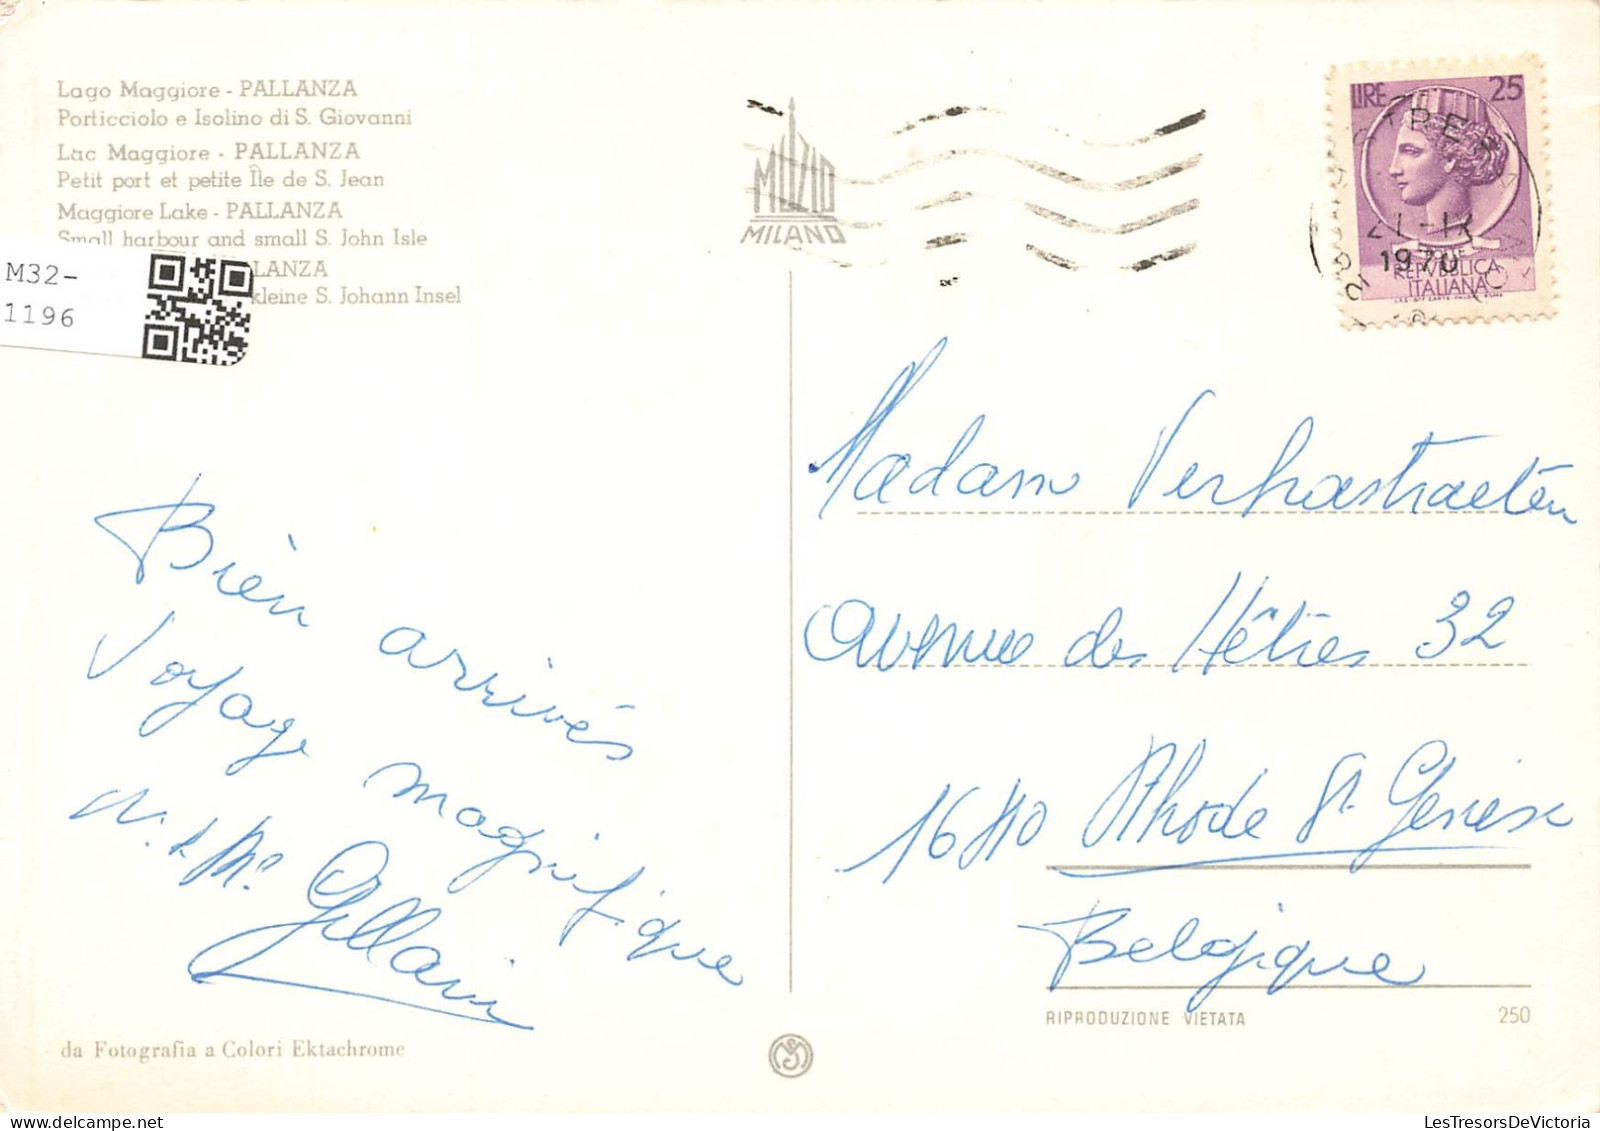 Lago Maggiore - PALLANZA
Porticciolo e Isolino di S. Giovanni
Lac Maggiore - PALLANZA
Petit port et petite Île de S. Jean
Maggiore Lake - PALLANZA
Small harbour and small S. John Isle
LANZA
kleine S. Johann Insel
M32-
1196
MUZIO
MILANO
LIRE 25
21-IX
1970
REPUBBLICA
ITALIANA
Bien arrivés
Voyage magnifique
M. & Me
Gillain
Madam Verhastraeten
Avenue des Hêtres 32
1640 Rhode St Genèse
Belgique
RIPRODUZIONE VIETATA
250
da Fotografia a Colori Ektachrome
LesTresorsDeVictoria.com